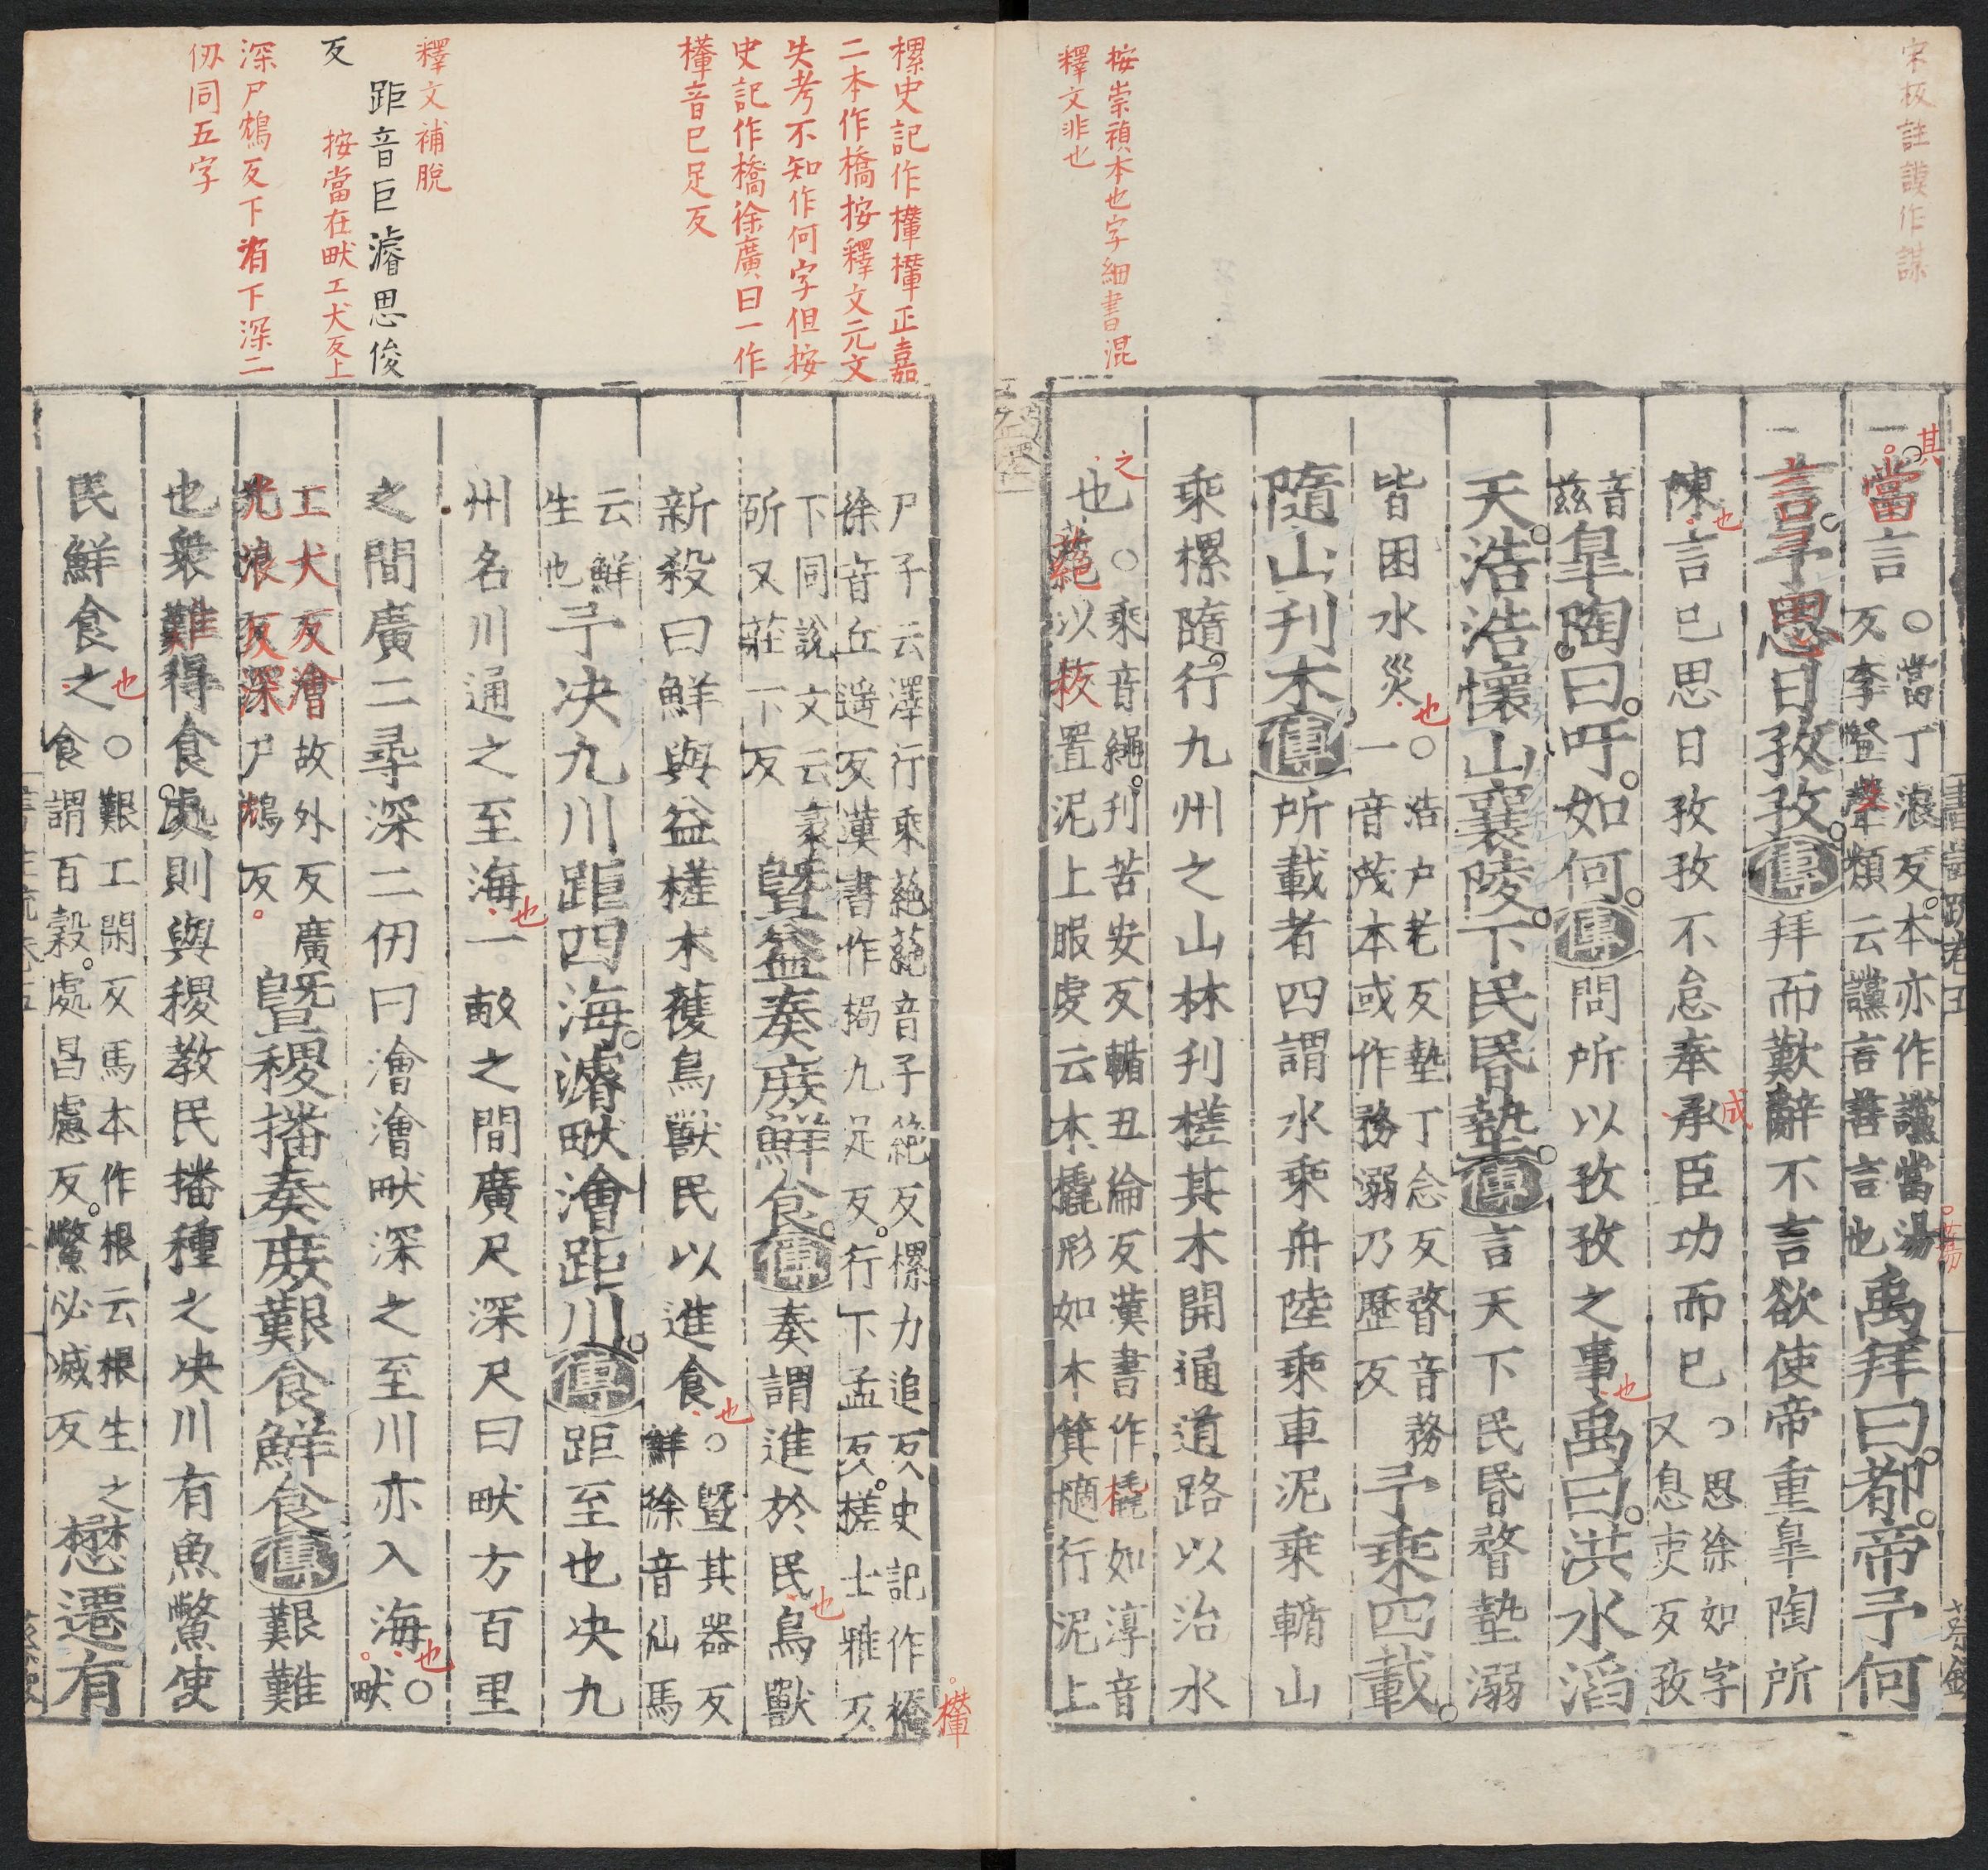 宋板註謨作謀
按崇禎本也字細書混
釋文非也
其
當言○當丁浪反本亦作讜當湯
反李登聲類云讜言善言也禹拜曰都帝予何
言予思日孜孜傳拜而歎辭不言欲使帝重皐陶所
陳也言己思日孜孜不怠奉承成臣功而已○思徐如字
又息吏反孜
音茲皐陶曰吁如何傳問所以孜孜之事也禹曰洪水滔
天浩浩懷山襄陵下民昏墊傳言天下民昏瞀墊溺
皆困水災也○浩户老反墊丁念反瞀音務
一音茂本或作務溺乃歷反予乘四載
隨山刋木傳所載者四謂水乘舟陸乘車泥乘輴山
乘樏隨行九州之山林刋槎其木開通道路以治水
也之○乘音繩刋苦安反輴丑倫反漢書作橇如淳音
蕝以板置泥上服虔云木橇形如木箕擿行泥上
樏史記作樺樺正嘉
二本作橋按釋文元文
失考不知作何字但按
史記作橋徐廣曰一作
樺音已足反
釋文補脫
距音巨濬思俊
反
按當在畎工犬反上
深尸鴆反下有下深二
仭同五字
尸子云澤行乘蕝蕝音子絶反樏力追反史記作橋
徐音丘遥反漢書作梮九足反行下孟反槎士雅反
下同說文云衺
斫又莊下反暨益奏庶鮮食傳奏謂進於民也鳥獸
新殺曰鮮與益槎木獲鳥獸民以進食也○暨其器反
鮮徐音仙馬
云鮮
生也予决九川距四海濬畎澮距川傳距至也决九
州名川通之至海也一畝之間廣尺深尺曰畎方百里
之間廣二尋深二仞曰澮澮畎深之至川亦入海也○畎
工犬反澮故外反廣
光浪反深尸鴆反暨稷播奏庶艱食鮮食傳艱難
也衆難得食處則與稷教民播種之决川有魚鱉使
民鮮食之也○艱工閑反馬本作根云根生之
食謂百穀處昌慮反鱉必滅反懋遷有